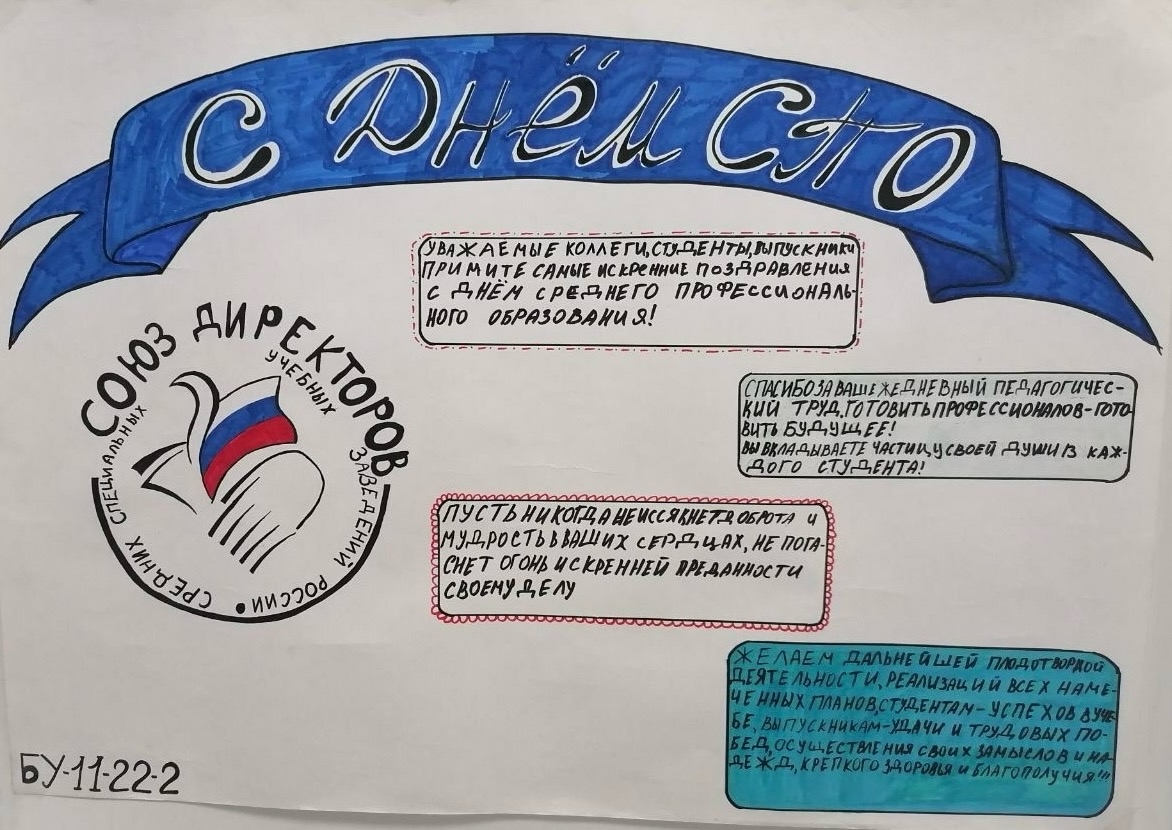 С ДНЁМ СПО
УВАЖАЕМЫЕ КОЛЛЕГИ, СТУДЕНТЫ, ВЫПУСКНИКИ
ПРИМИТЕ САМЫЕ ИСКРЕННИЕ ПОЗДРАВЛЕНИЯ
С ДНЁМ СРЕДНЕГО ПРОФЕССИОНАЛЬ-
НОГО ОБРАЗОВАНИЯ!
СОЮЗ ДИРЕКТОРОВ
СРЕДНИХ СПЕЦИАЛЬНЫХ УЧЕБНЫХ ЗАВЕДЕНИЙ РОССИИ •
СПАСИБО ЗА ВАШ ЕЖЕДНЕВНЫЙ ПЕДАГОГИЧЕС-
КИЙ ТРУД, ГОТОВИТЬ ПРОФЕССИОНАЛОВ-ГОТО-
ВИТЬ БУДУЩЕЕ!
ВЫ ВКЛАДЫВАЕТЕ ЧАСТИЦУ СВОЕЙ ДУШИ В КАЖ-
ДОГО СТУДЕНТА!
ПУСТЬ НИКОГДА НЕ ИССЯКНЕТ ДОБРОТА И
МУДРОСТЬ В ВАШИХ СЕРДЦАХ, НЕ ПОГА-
СНЕТ ОГОНЬ ИСКРЕННЕЙ ПРЕДАННОСТИ
СВОЕМУ ДЕЛУ
ЖЕЛАЕМ ДАЛЬНЕЙШЕЙ ПЛОДОТВОРНОЙ
ДЕЯТЕЛЬНОСТИ, РЕАЛИЗАЦИЙ ВСЕХ НАМЕ-
ЧЕННЫХ ПЛАНОВ, СТУДЕНТАМ-УСПЕХОВ В УЧЕ-
БЕ, ВЫПУСКНИКАМ-УДАЧИ И ТРУДОВЫХ ПО-
БЕД, ОСУЩЕСТВЛЕНИЯ СВОИХ ЗАМЫСЛОВ И НА-
ДЕЖД, КРЕПКОГО ЗДОРОВЬЯ И БЛАГОПОЛУЧИЯ!!!
БУ-11-22-2